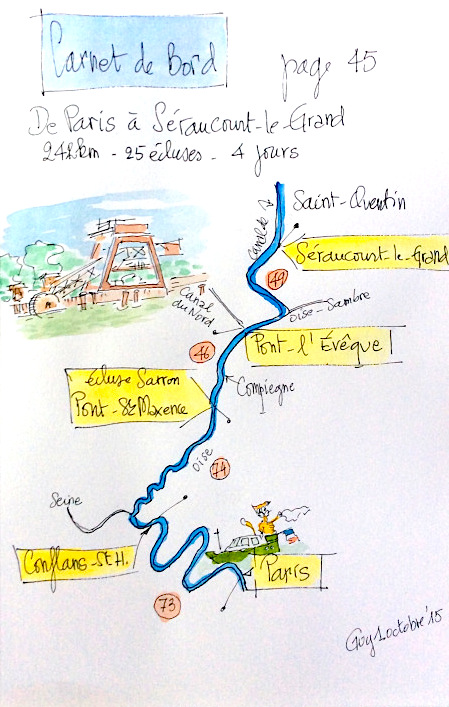 Carnet de Bord
page 45
De Paris à Séraucourt-le-Grand
242km - 25 écluses - 4 jours
Saint-Quentin
Canal de St
Séraucourt-le-Grand
49
Canal
du Nord
Oise-Sambre
Pont-l'Évêque
46
écluse Sarron
Pont-Ste Maxence
Compiegne
Oise
74
Seine
Conflans-St H.
Paris
73
Guy 1 octobre '15